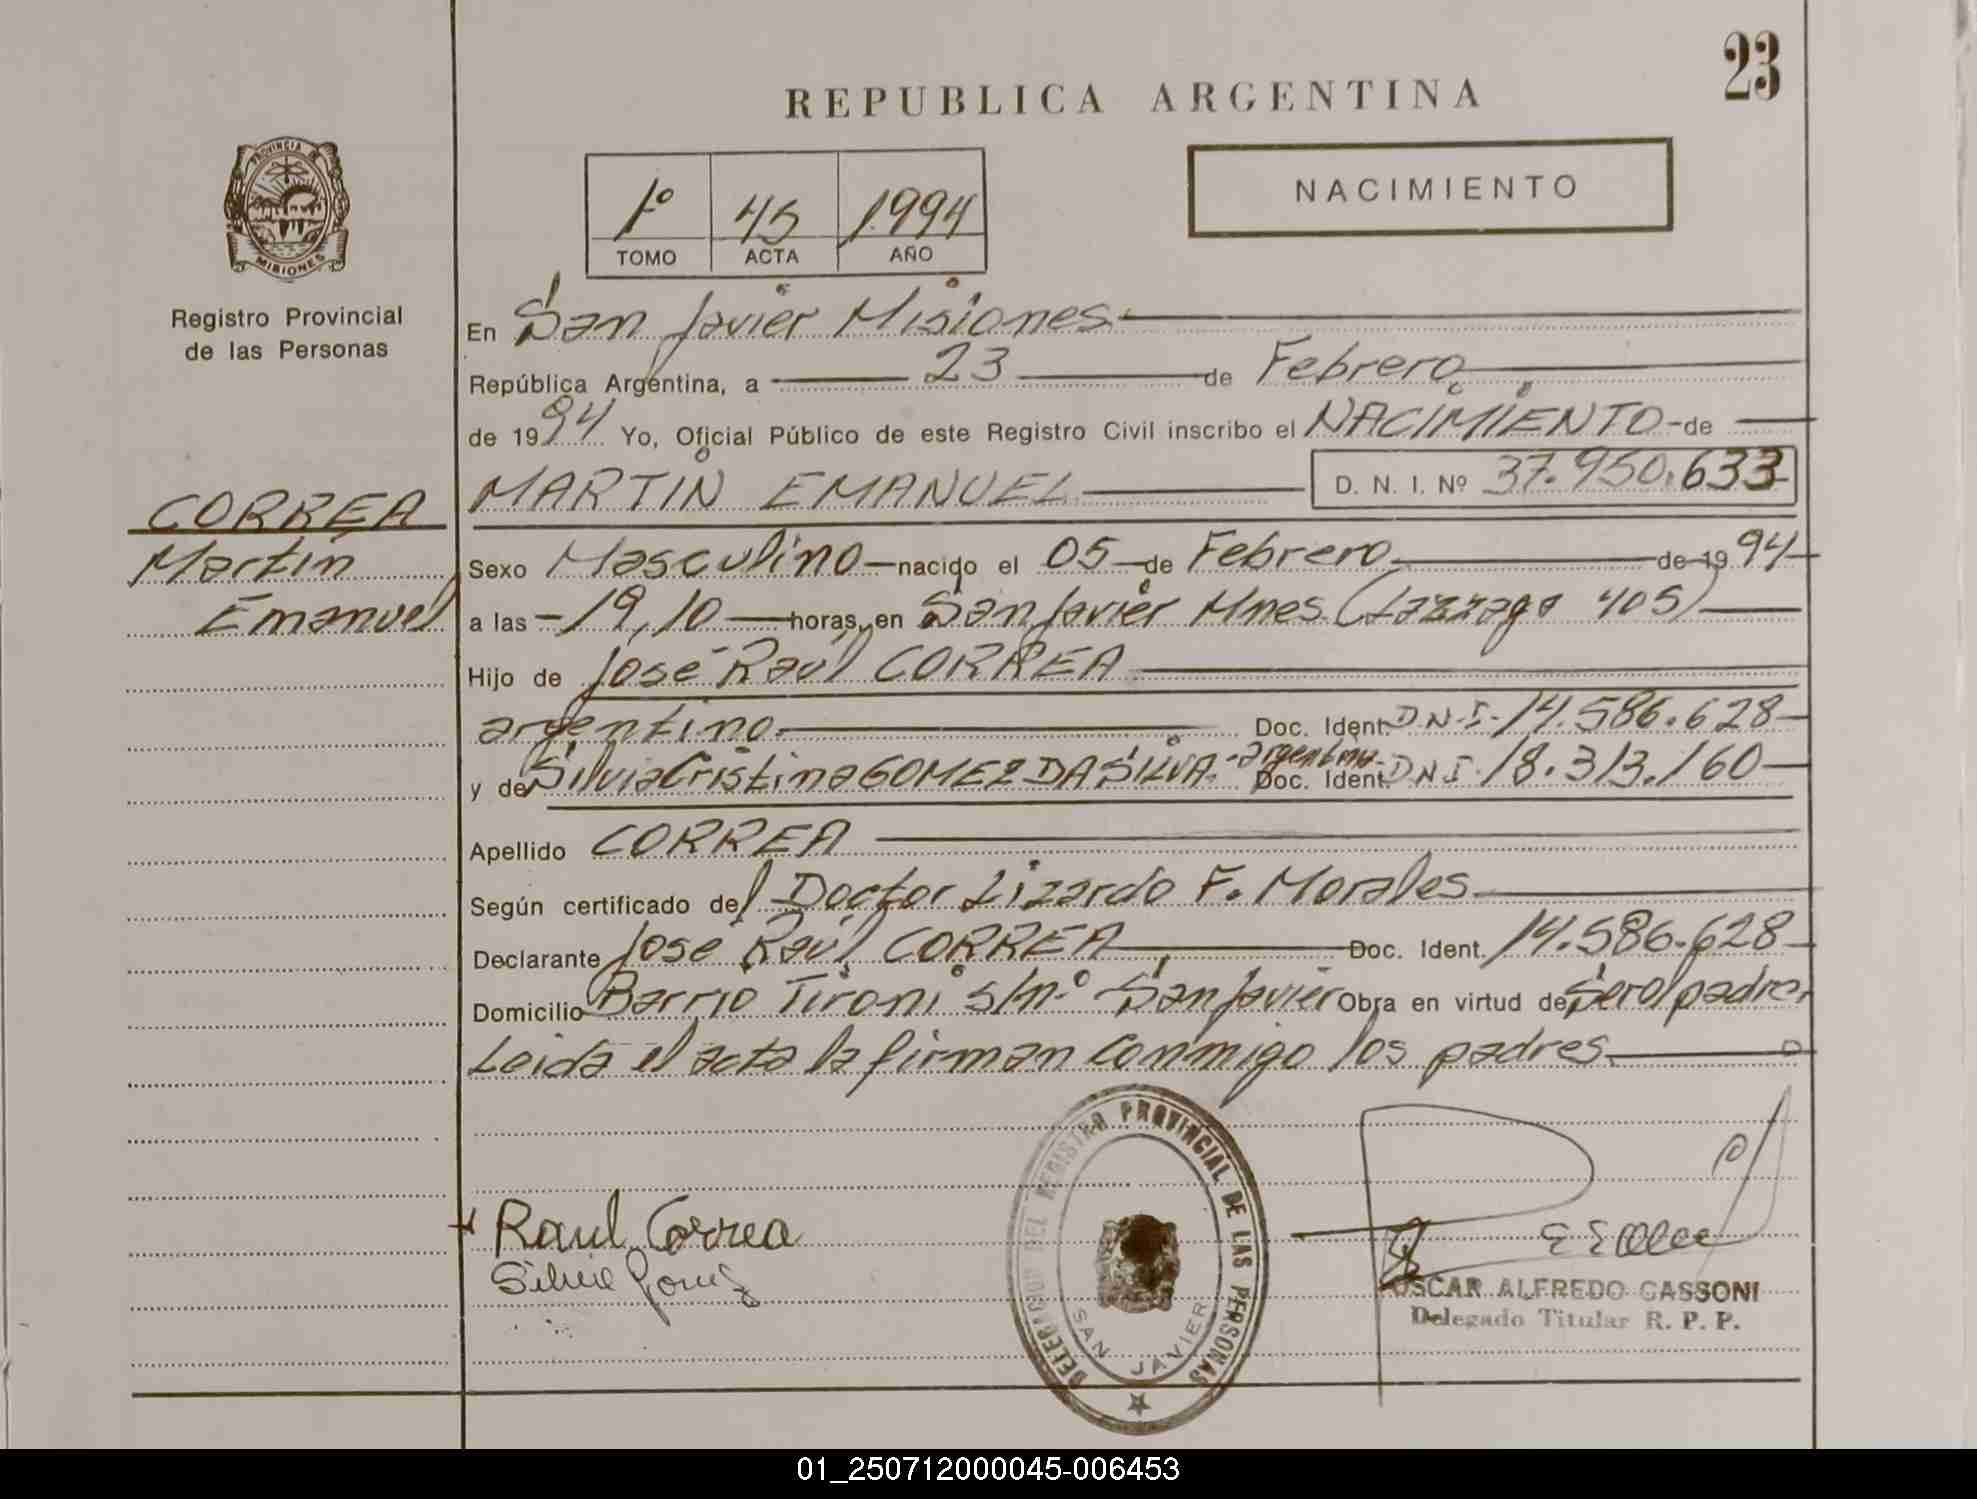 23
REPUBLICA ARGENTINA
PROVINCIA DE
MISIONES
1º 45 1994
TOMO ACTA AÑO
NACIMIENTO
Registro Provincial
de las Personas
En San Javier Misiones
República Argentina, a 23 de Febrero
de 1994 Yo, Oficial Público de este Registro Civil inscribo el NACIMIENTO de
MARTIN EMANUEL D. N. I. Nº 37.950.633
CORREA
Martin
Emanuel
Sexo Masculino nacido el 05 de Febrero de 1994
a las 19,10 horas, en San Javier Mnes (Lazzaga 405)
Hijo de José Raúl CORREA
argentino Doc. Ident. D.N.I. 14.586.628
y de Silvia Cristina GOMEZ DA SILVA - argentina - Doc. Ident. D.N.I. 18.313.160
Apellido CORREA
Según certificado del Doctor Lizardo F. Morales
Declarante José Raúl CORREA Doc. Ident. 14.586.628
Domicilio Barrio Tironi s/nº San Javier Obra en virtud de Ser el padre.
Leida el acta la firman conmigo los padres
DELEGACION DEL REGISTRO PROVINCIAL DE LAS PERSONAS
SAN JAVIER
Raul Correa
Silvia Gomez
OSCAR ALFREDO GASSONI
Delegado Titular R. P. P.
01_250712000045-006453